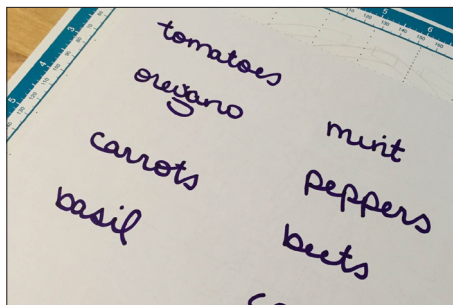 tomatoes
oregano
carrots
basil
mint
peppers
beets